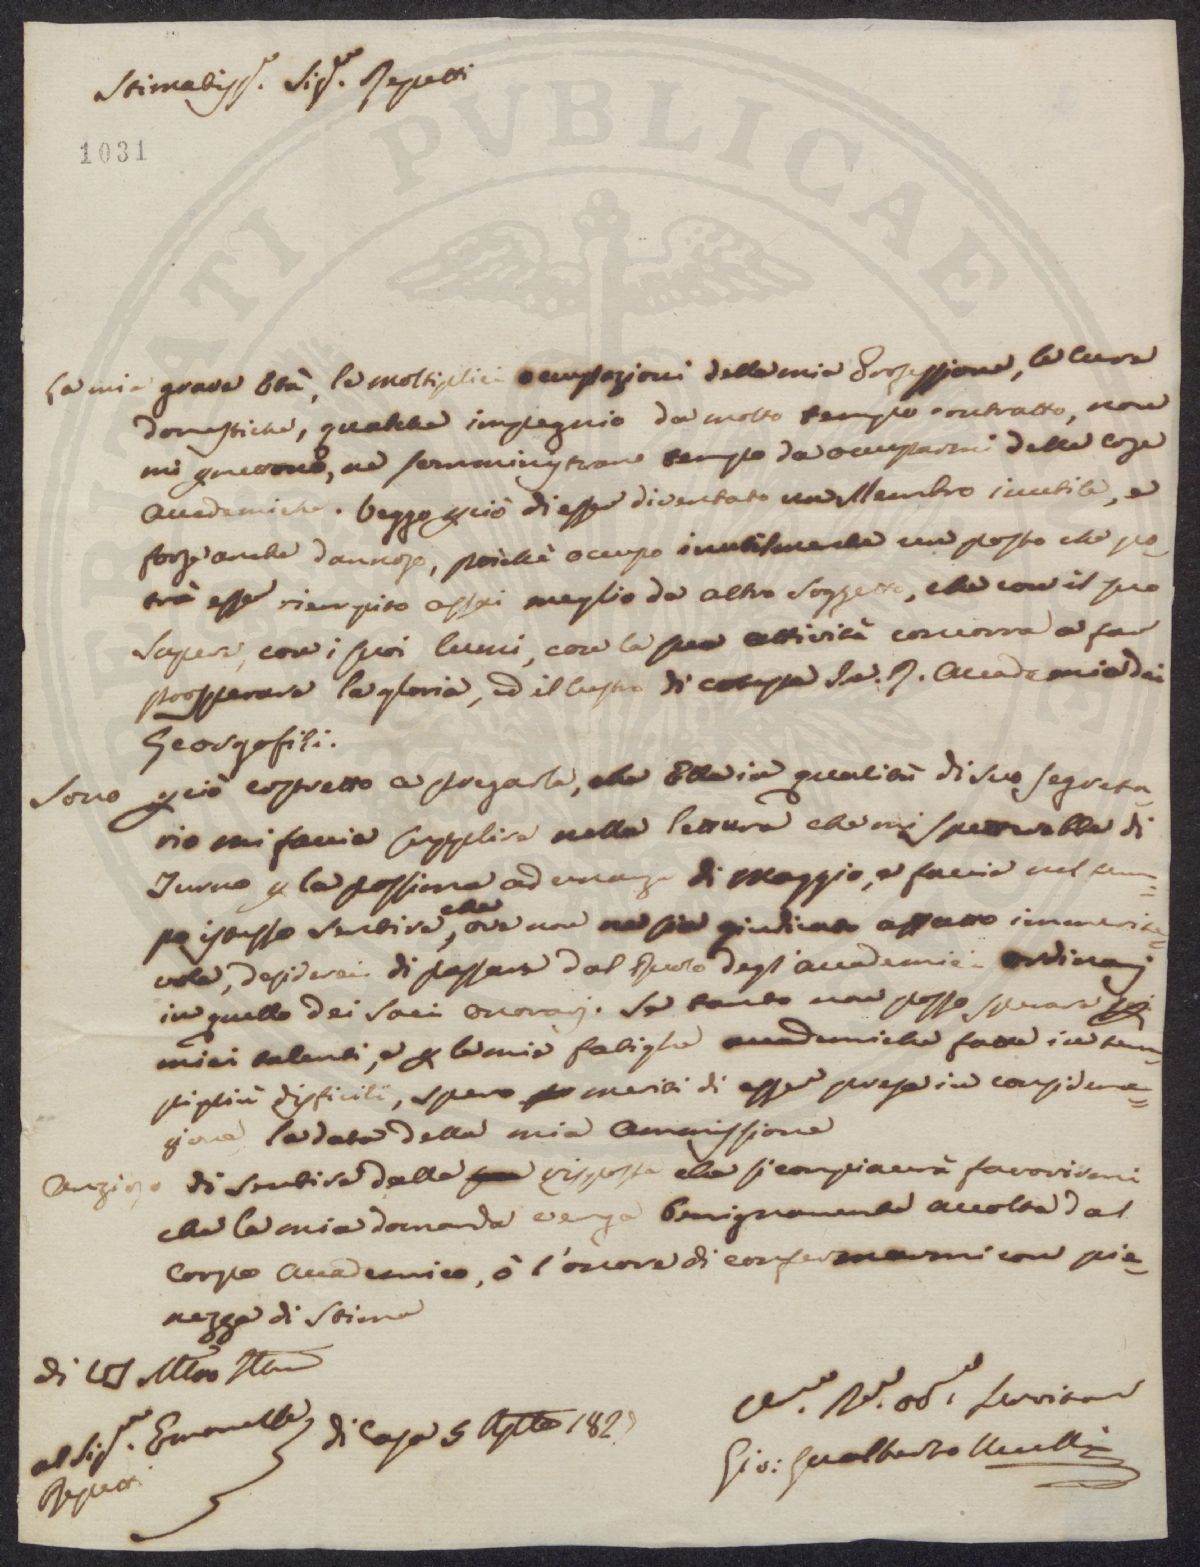 Stimatiss.mo Sig.re Repetti
1031
PVBLICAE
La mia grave Età, le moltiplici occupazioni della mia Professione, le Cure
domestiche, qualche impegnio da molto tempo contratto, non
mi, ne somministrano tempo da occuparmi delle Cose
Accademiche. Veggo perciò di esser diventato un Membro inutile, e
forse anche dannoso, poichè occupo inutilmente un posto che po-
trà esser riempito assai meglio da altro Soggetto, che con il suo
Sapere, con i suoi lumi, con la sua attività concorra a far
prosperare la gloria, ed il lustro di cotesta I. e R. Accademia dei
Georgofili.
Sono perciò costretto a pregarla, che Ella in qualità di suo Segreta-
rio mi faccia supplire nella lettura che mi spetterebbe di
Turno per la prossima adunanza di Maggio, e faccia nel tem=
po istesso sentire, che ove non ne sia giudicato affatto immerite-
vole, desidererei di passare dal Ruolo degl'accademici ordinarj
in quello dei Soci onorarj. Se tanto non posso sperare pei
miei talenti, e per le mie fatighe accademiche fatte in tem-
pi più difficili, spero meriti di esser presa in considera=
zione la data della mia Ammissione
Anzioso di sentire dalla risposta che si compiacerà favorirmi
che la mia domanda venga benignamente accolta dal
Corpo Accademico, ò l'onore di confermarmi con pie-
nezza di Stima
di
al Sig.re Emanuelle
Repetti
di Casa 5 182
Dev.mo Obb.mo Servitore
Gio: Gualberto Uccelli